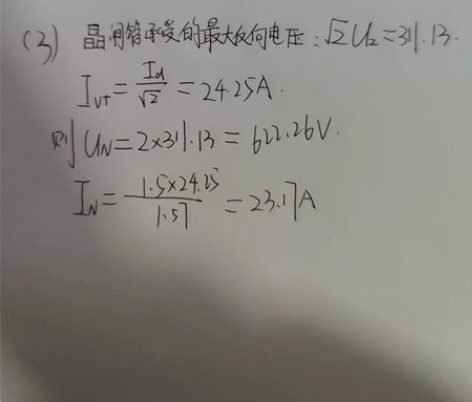 (3) 晶闸管承受的最大反向电压:√2U₂=311.13.
I_VT=I_d/√2=24.25A.
则U_N=2×311.13=622.26V.
I_N=1.5×24.25/1.57=23.17A